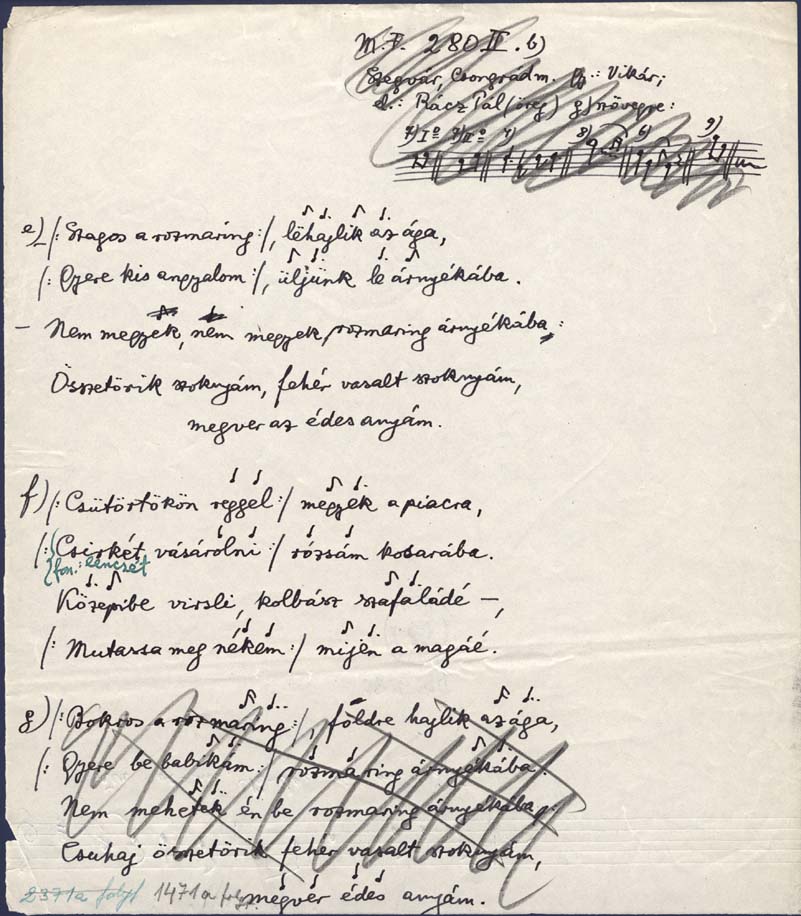 M.F. 280 II. b)
Szegvár, Csongrádm. Gy.: Vikár;
É.: Rácz Pál (öreg) g) szövegre:
7) I⁰ 7) II⁰ 7) 8) 6) 9)
e) /: Szagos a rozmaring :/, lëhajlik az ága,
/: Gyere kis angyalom :/, üljünk le árnyékába.
– Nem megyek, nem megyek, rozmaring árnyékába;
Összetörik szoknyám, fehér vasalt szoknyám,
megver az édes anyám.
f) /: Csütörtökön reggel :/ megyek a piacra,
/: Csirkét vásárolni :/ rózsám kosarába.
fon.: lencsét
Közepibe virsli, kolbász szafaládé –,
/: Mutassa meg nékem :/ mijen a magáé.
g) /: Bokros a rozmaring :/, földre hajlik az ága,
/: Gyere be babikám :/ rozmaring árnyékába.
Nem mehetek én be rozmaring árnyékába,
Csuhaj összetörik fehér vasalt szoknyám,
megver édes anyám.
2371a folyt 1471a foly.